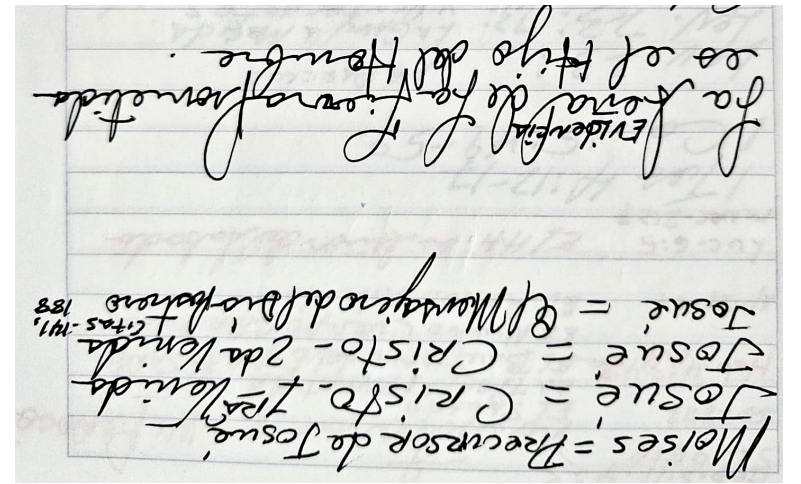 Moises = Precursor de Josué
Josué = Cristo - 1RA Venida
Josué = Cristo - 2da Venida
Josué = El Mensajero del Día Postrero Citas -141, 188
La Señal de La Tierra Prometida
Evidencia
es el Hijo del Hombre.